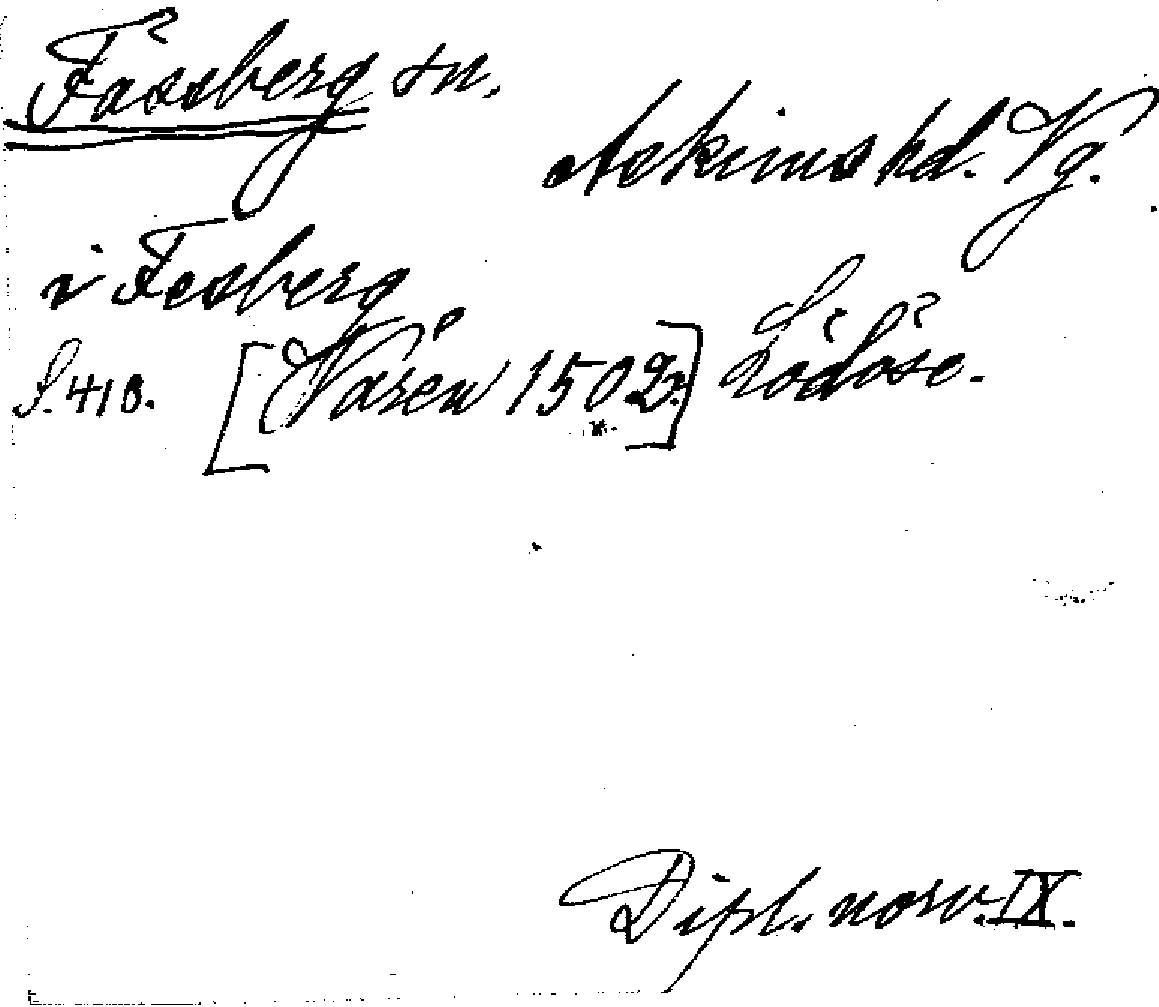 Fässberg sn.
Askims hd. Vg.
i Fesberg
S. 418. [Våren 1502.] Lödöse.
Dipl. norv. IX.